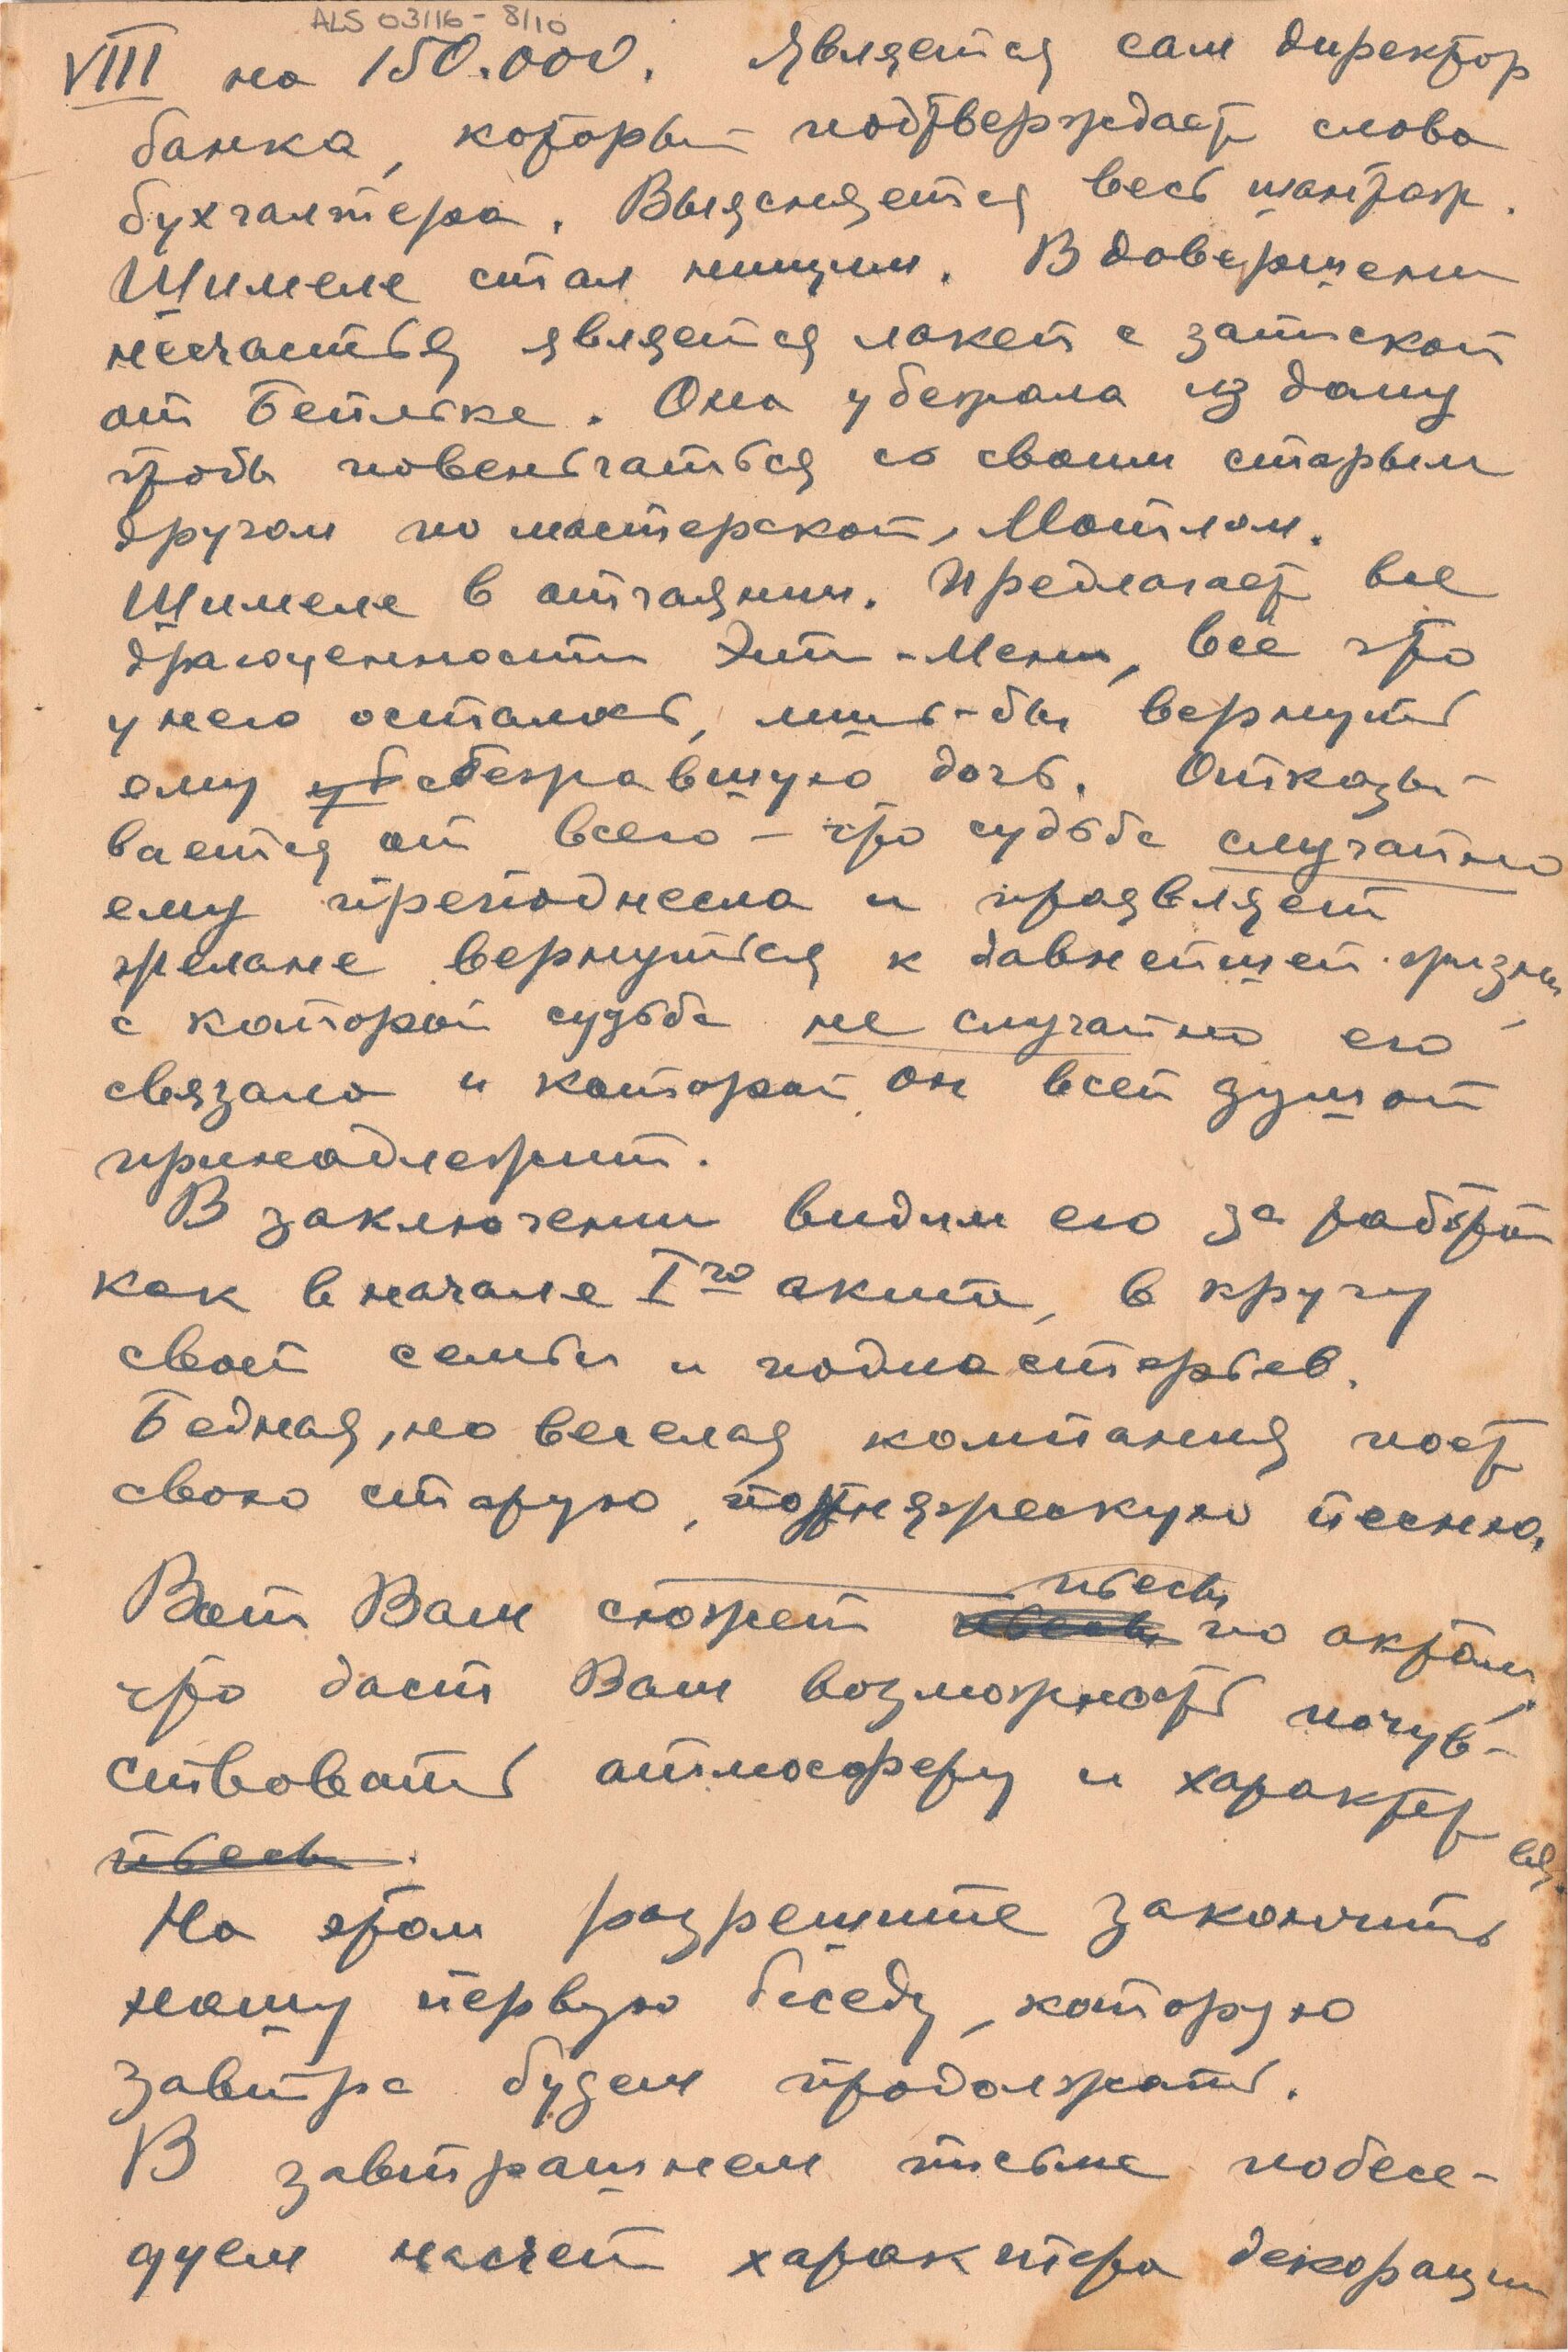 ALS 03/16 - 8/10
VIII на 150.000. Является сам директор
банка, который подтверждает слова
бухгалтера. Выясняется весь шантаж.
Шимеле стал нищим. В довершени
несчастья является лакей с запиской
от Бейльке. Она убежала из дому
чтобы повенчаться со своим старым
другом по мастерской, Мотлом.
Шимеле в отчаянии. Предлагает все
драгоценности Эти-Мени, всё что
у него осталось, лишь-бы вернуть
ему уб сбежавшую дочь. Отказы-
вается от всего - что судьба случайно
ему преподнесла и проявляет
желание вернуться к давнейшей жизни,
с которой судьба не случайно его
связала и которой он всей душой
принадлежит.
В заключении видим его за работой
как в начале Iго акта, в кругу
своей семьи и подмастерьев.
Бедная, но веселая компания поет
свою старую, портняжескую песню.
Вот Вам сюжет пьесы по актам,
что даст Вам возможность почув-
ствовать атмосферу и характер её.
пьесы.
На этом разрешите закончить
нашу первую беседу, которую
завтра будем продолжать.
В завтрашнем письме побесе-
дуем насчет характера декорации